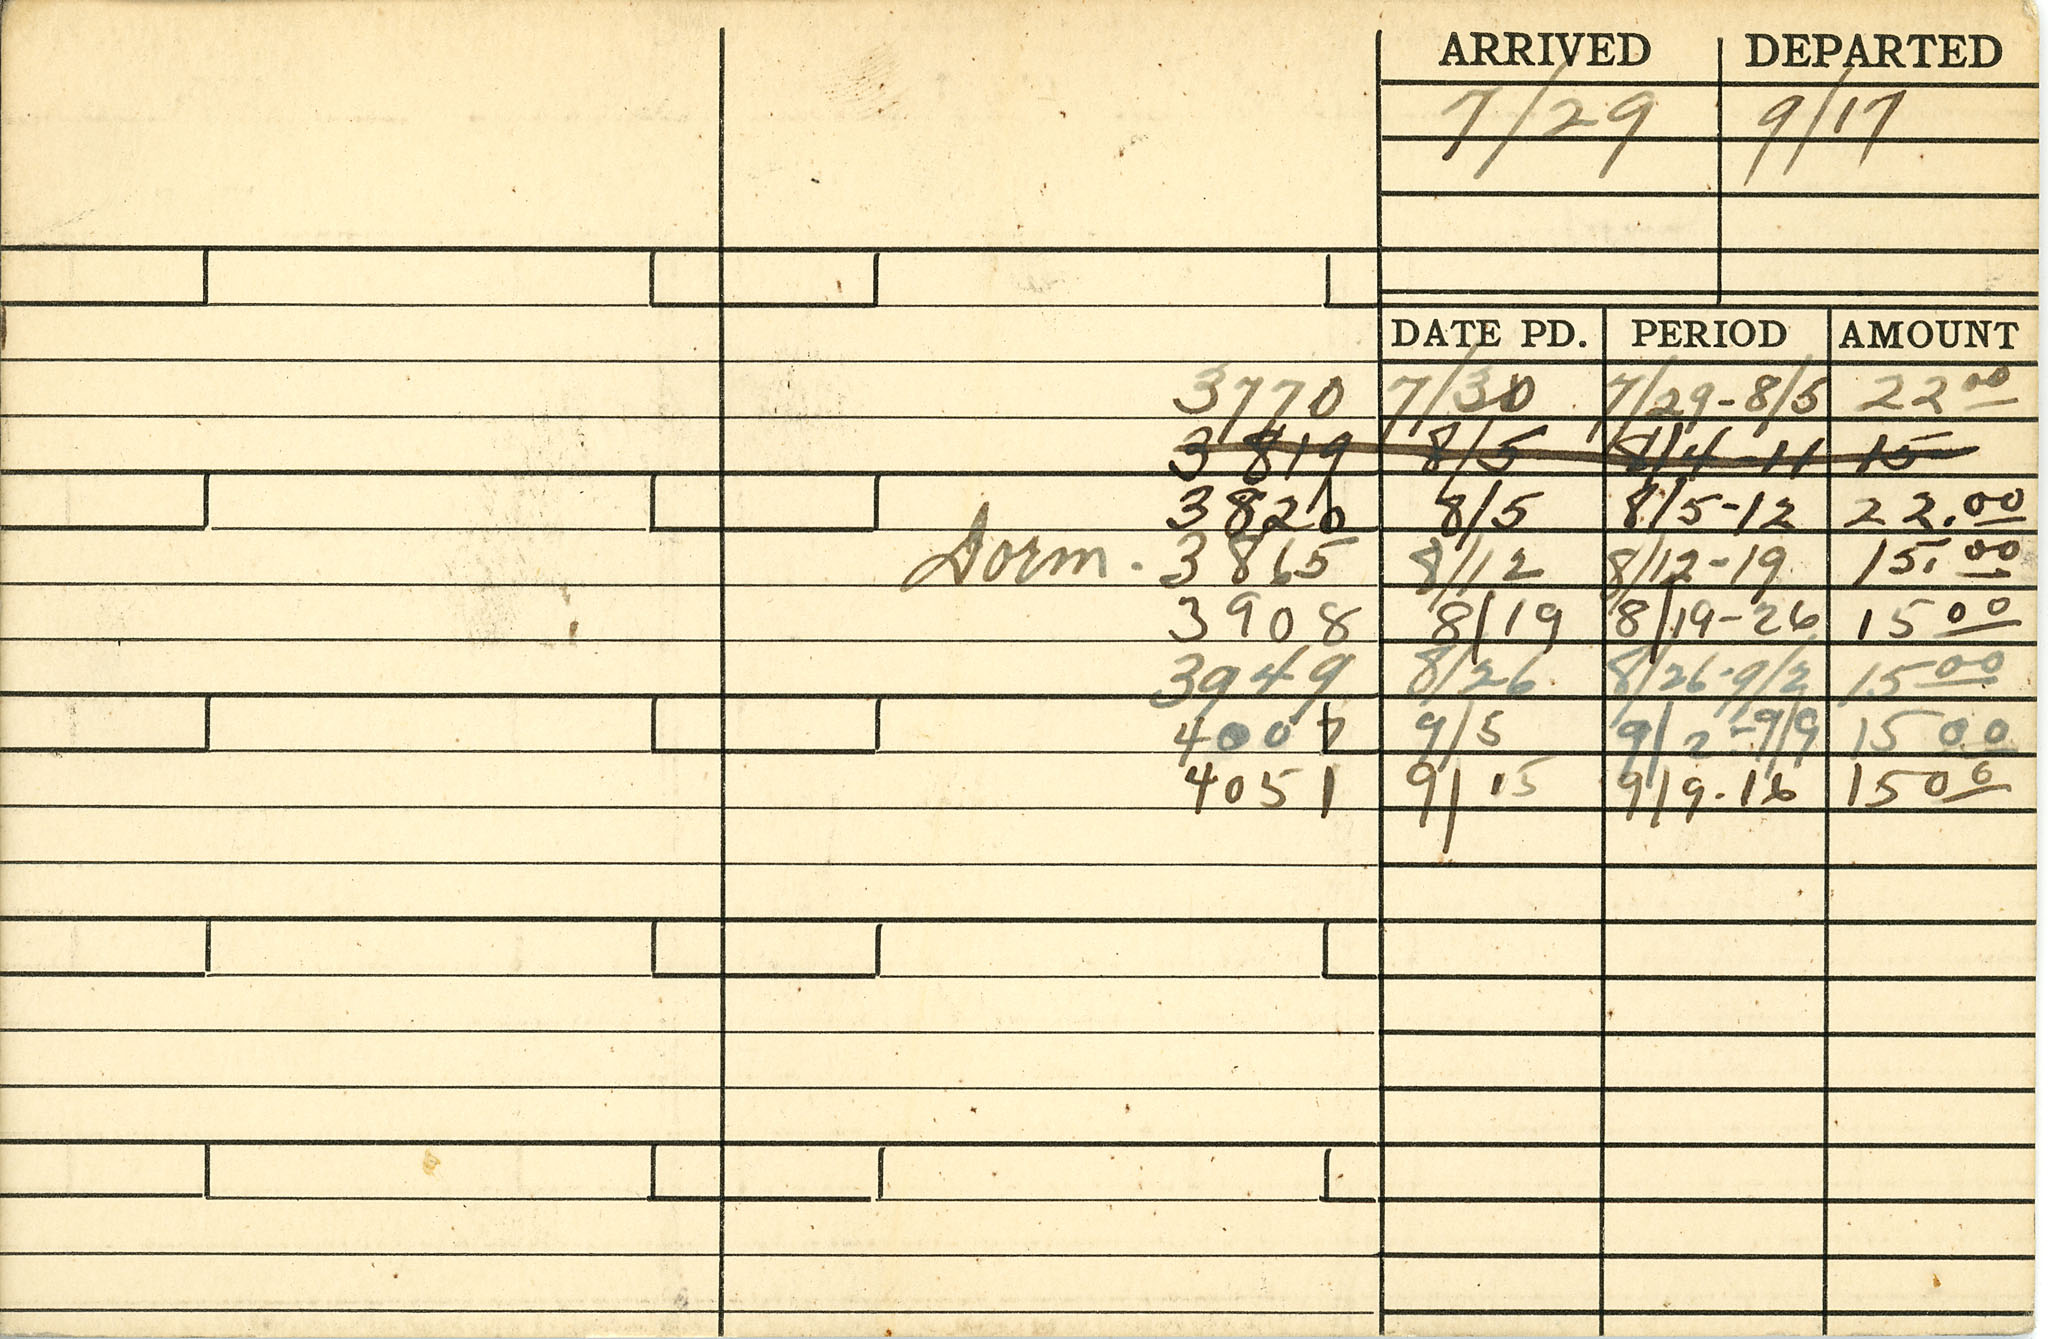 ARRIVED DEPARTED
7/29 9/17
DATE PD. PERIOD AMOUNT
3770 7/30 7/29-8/5 22 00
3819 8/5 8/4-11 15-
3820 8/5 8/5-12 22.00
Dorm. 3865 8/12 8/12-19 15.00
3908 8/19 8/19-26 15 00
3949 8/26 8/26-9/2 15 00
4007 9/5 9/2-9/9 15 00
4051 9/15 9/9-16 15 00